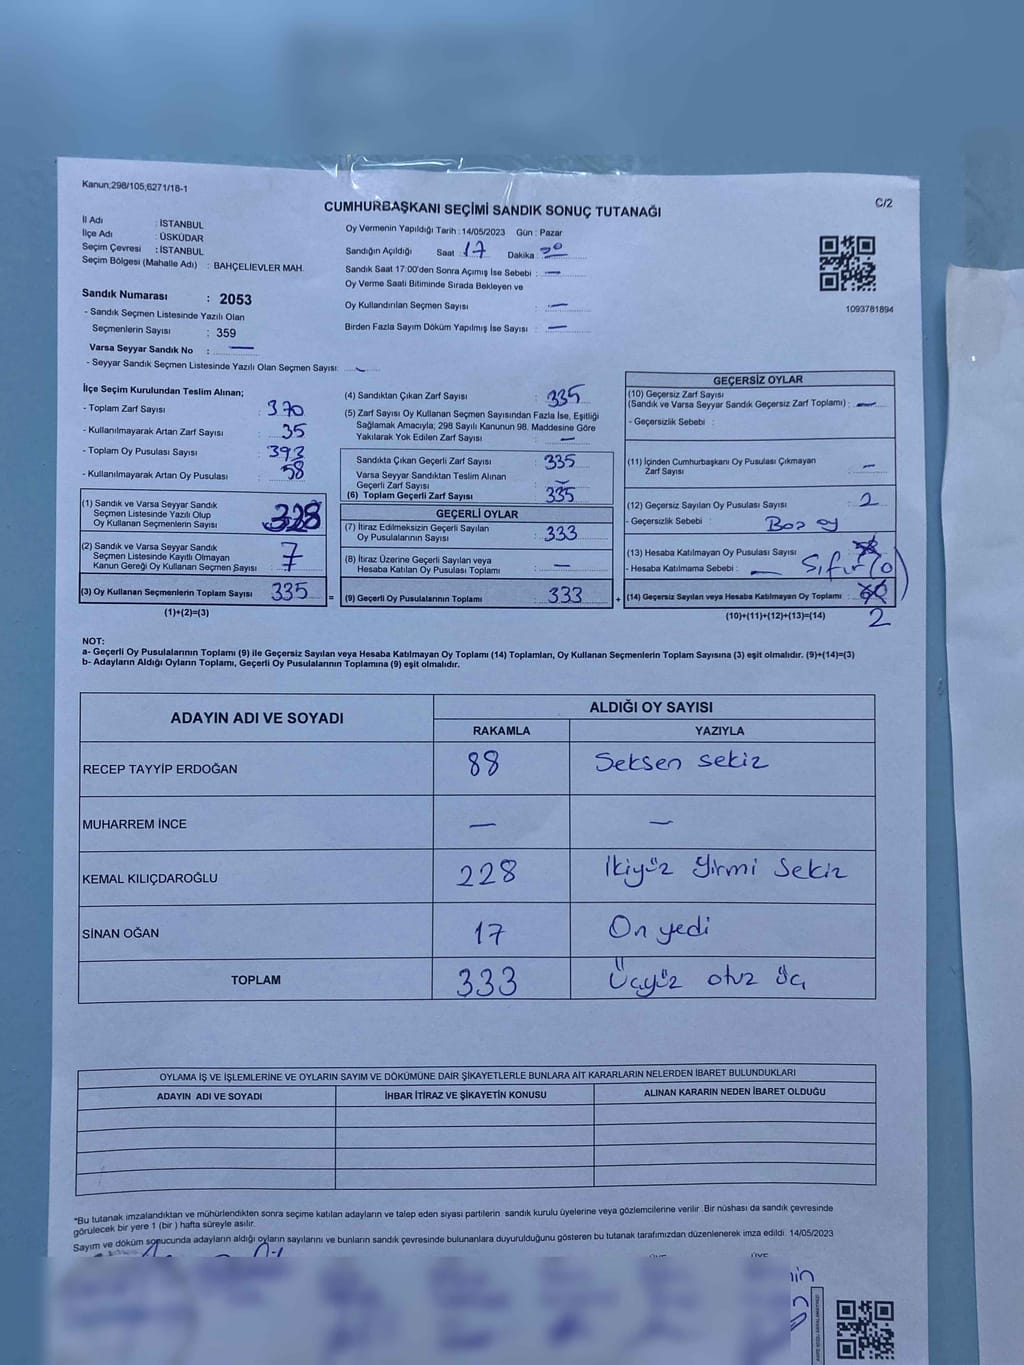 Kanun;298/105,6271/18-1
C/2
CUMHURBAŞKANI SEÇİMİ SANDIK SONUÇ TUTANAĞI
İl Adı : İSTANBUL
İlçe Adı : ÜSKÜDAR
Seçim Çevresi : İSTANBUL
Seçim Bölgesi (Mahalle Adı) : BAHÇELİEVLER MAH.
Sandık Numarası : 2053
- Sandık Seçmen Listesinde Yazılı Olan
Seçmenlerin Sayısı : 359
Varsa Seyyar Sandık No : —
- Seyyar Sandık Seçmen Listesinde Yazılı Olan Seçmen Sayısı: —
Oy Vermenin Yapıldığı Tarih : 14/05/2023 Gün : Pazar
Sandığın Açıldığı Saat : 17 Dakika :
Sandık Saat 17:00'den Sonra Açılmış İse Sebebi : —
Oy Verme Saati Bitiminde Sırada Bekleyen ve
Oy Kullandırılan Seçmen Sayısı : —
Birden Fazla Sayım Döküm Yapılmış İse Sayısı : —
1093781894
İlçe Seçim Kurulundan Teslim Alınan;
- Toplam Zarf Sayısı : 370
- Kullanılmayarak Artan Zarf Sayısı : 35
- Toplam Oy Pusulası Sayısı : 393
- Kullanılmayarak Artan Oy Pusulası : 58
(1) Sandık ve Varsa Seyyar Sandık
Seçmen Listesinde Yazılı Olup
Oy Kullanan Seçmenlerin Sayısı : 328
(2) Sandık ve Varsa Seyyar Sandık
Seçmen Listesinde Kayıtlı Olmayan
Kanun Gereği Oy Kullanan Seçmen Sayısı : 7
(3) Oy Kullanan Seçmenlerin Toplam Sayısı : 335 =
(1)+(2)=(3)
(4) Sandıktan Çıkan Zarf Sayısı : 335
(5) Zarf Sayısı Oy Kullanan Seçmen Sayısından Fazla İse, Eşitliği
Sağlamak Amacıyla; 298 Sayılı Kanunun 98. Maddesine Göre
Yakılarak Yok Edilen Zarf Sayısı : —
Sandıkta Çıkan Geçerli Zarf Sayısı : 335
Varsa Seyyar Sandıktan Teslim Alınan
Geçerli Zarf Sayısı : —
(6) Toplam Geçerli Zarf Sayısı : 335
GEÇERLİ OYLAR
(7) İtiraz Edilmeksizin Geçerli Sayılan
Oy Pusulalarının Sayısı : 333
(8) İtiraz Üzerine Geçerli Sayılan veya
Hesaba Katılan Oy Pusulası Toplamı : —
(9) Geçerli Oy Pusulalarının Toplamı : 333 +
GEÇERSİZ OYLAR
(10) Geçersiz Zarf Sayısı
(Sandık ve Varsa Seyyar Sandık Geçersiz Zarf Toplamı) : —
- Geçersizlik Sebebi :
(11) İçinden Cumhurbaşkanı Oy Pusulası Çıkmayan
Zarf Sayısı : —
(12) Geçersiz Sayılan Oy Pusulası Sayısı : 2
- Geçersizlik Sebebi : Boş oy
(13) Hesaba Katılmayan Oy Pusulası Sayısı : 58
- Hesaba Katılmama Sebebi : — Sıfır(0)
(14) Geçersiz Sayılan veya Hesaba Katılmayan Oy Toplamı : 60
(10)+(11)+(12)+(13)=(14) 2
NOT:
a- Geçerli Oy Pusulalarının Toplamı (9) ile Geçersiz Sayılan veya Hesaba Katılmayan Oy Toplamı (14) Toplamları, Oy Kullanan Seçmenlerin Toplam Sayısına (3) eşit olmalıdır. (9)+(14)=(3)
b- Adayların Aldığı Oyların Toplamı, Geçerli Oy Pusulalarının Toplamına (9) eşit olmalıdır.
ADAYIN ADI VE SOYADI ALDIĞI OY SAYISI
RAKAMLA YAZIYLA
RECEP TAYYİP ERDOĞAN 88 Seksen sekiz
MUHARREM İNCE — —
KEMAL KILIÇDAROĞLU 228 İkiyüz Yirmi Sekiz
SİNAN OĞAN 17 On yedi
TOPLAM 333 Üçyüz otuz üç
OYLAMA İŞ VE İŞLEMLERİNE VE OYLARIN SAYIM VE DÖKÜMÜNE DAİR ŞİKAYETLERLE BUNLARA AİT KARARLARIN NELERDEN İBARET BULUNDUKLARI
ADAYIN ADI VE SOYADI İHBAR İTİRAZ VE ŞİKAYETİN KONUSU ALINAN KARARIN NEDEN İBARET OLDUĞU
*Bu tutanak imzalandıktan ve mühürlendikten sonra seçime katılan adayların ve talep eden siyasi partilerin sandık kurulu üyelerine veya gözlemcilerine verilir. Bir nüshası da sandık çevresinde
görülecek bir yere 1 (bir ) hafta süreyle asılır.
Sayım ve döküm sonucunda adayların aldığı oyların sayılarını ve bunların sandık çevresinde bulunanlara duyurulduğunu gösteren bu tutanak tarafımızdan düzenlenerek imza edildi. 14/05/2023